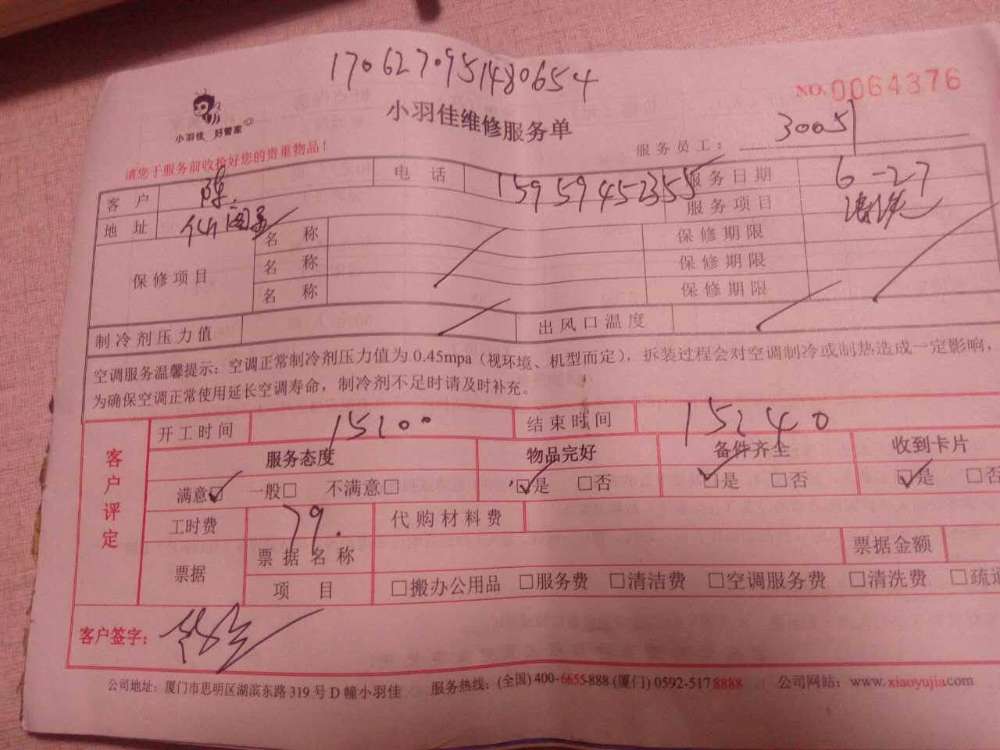 1706270951480654
NO.0064376
小羽佳 好管家
小羽佳维修服务单
服务员工: 3005
请您于服务前收捡好您的贵重物品!
客户 陈. 电话 15959452355 服务日期 6-27
地址 服务项目 清洗
保修项目 名称 保修期限
名称 保修期限
名称 保修期限
制冷剂压力值 出风口温度
空调服务温馨提示:空调正常制冷剂压力值为0.45mpa(视环境、机型而定),拆装过程会对空调制冷或制热造成一定影响,
为确保空调正常使用延长空调寿命,制冷剂不足时请及时补充。
客户评定 开工时间 15:00 结束时间 15:40
服务态度 物品完好 备件齐全 收到卡片
满意☑ 一般□ 不满意□ ☑是 □否 ☑是 □否 ☑是 □否
工时费 79. 代购材料费
票据 票据名称 票据金额
项目 □搬办公用品 □服务费 □清洁费 □空调服务费 □清洗费 □疏通
客户签字:
公司地址:厦门市思明区湖滨东路319号D幢小羽佳 服务热线:(全国)400-6655-888(厦门)0592-5178888 公司网站:www.xiaoyujia.com